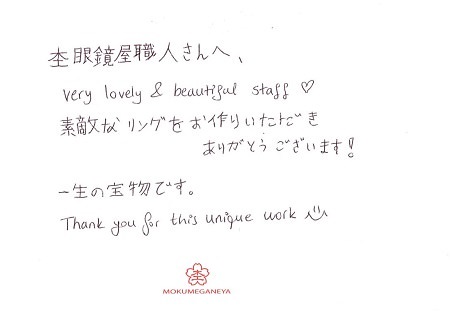 杢眼鏡屋職人さんへ、
very lovely & beautiful staff ♡
素敵なリングをお作りいただき
ありがとうございます!
一生の宝物です。
Thank you for this unique work
杢
MOKUMEGANEYA